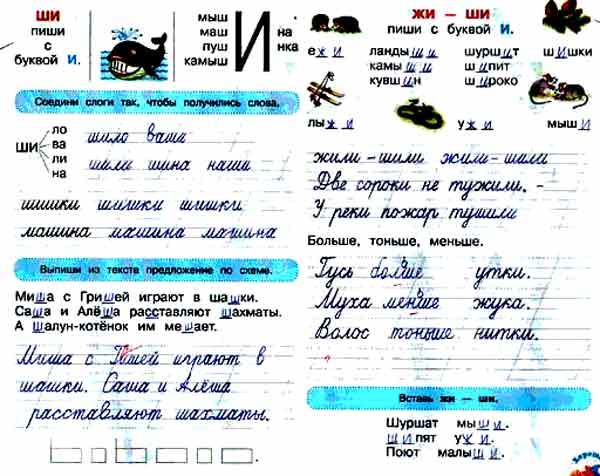 ШИ
пиши
с
буквой И.
мыш
маш
пуш
камыш
И
на
нка
Соедини слоги так, чтобы получились слова.
ШИ
ло
ва
ли
на
шило ваши
шили шина наши
шишки шишки шишки
машина машина машина
Выпиши из текста предложение по схеме.
Миша с Гришей играют в шашки.
Саша и Алёша расставляют шахматы.
А шалун-котёнок им мешает.
Миша с Гишей играют в
шашки. Саша и Алёша
расставляют шахматы.
ЖИ – ШИ
пиши с буквой И.
ежи
ландыши
шуршит
шишки
камыши
шипит
кувшин
широко
лыжи
ужи
мыши
жили – шили жили – шили
Две сороки не тужили. –
У реки пожар тушили
Больше, тоньше, меньше.
Гусь больше утки.
Муха меньше жука.
Волос тоньше нитки.
Вставь жи — ши.
Шуршат мыши.
Шипят ужи.
Поют малыши.